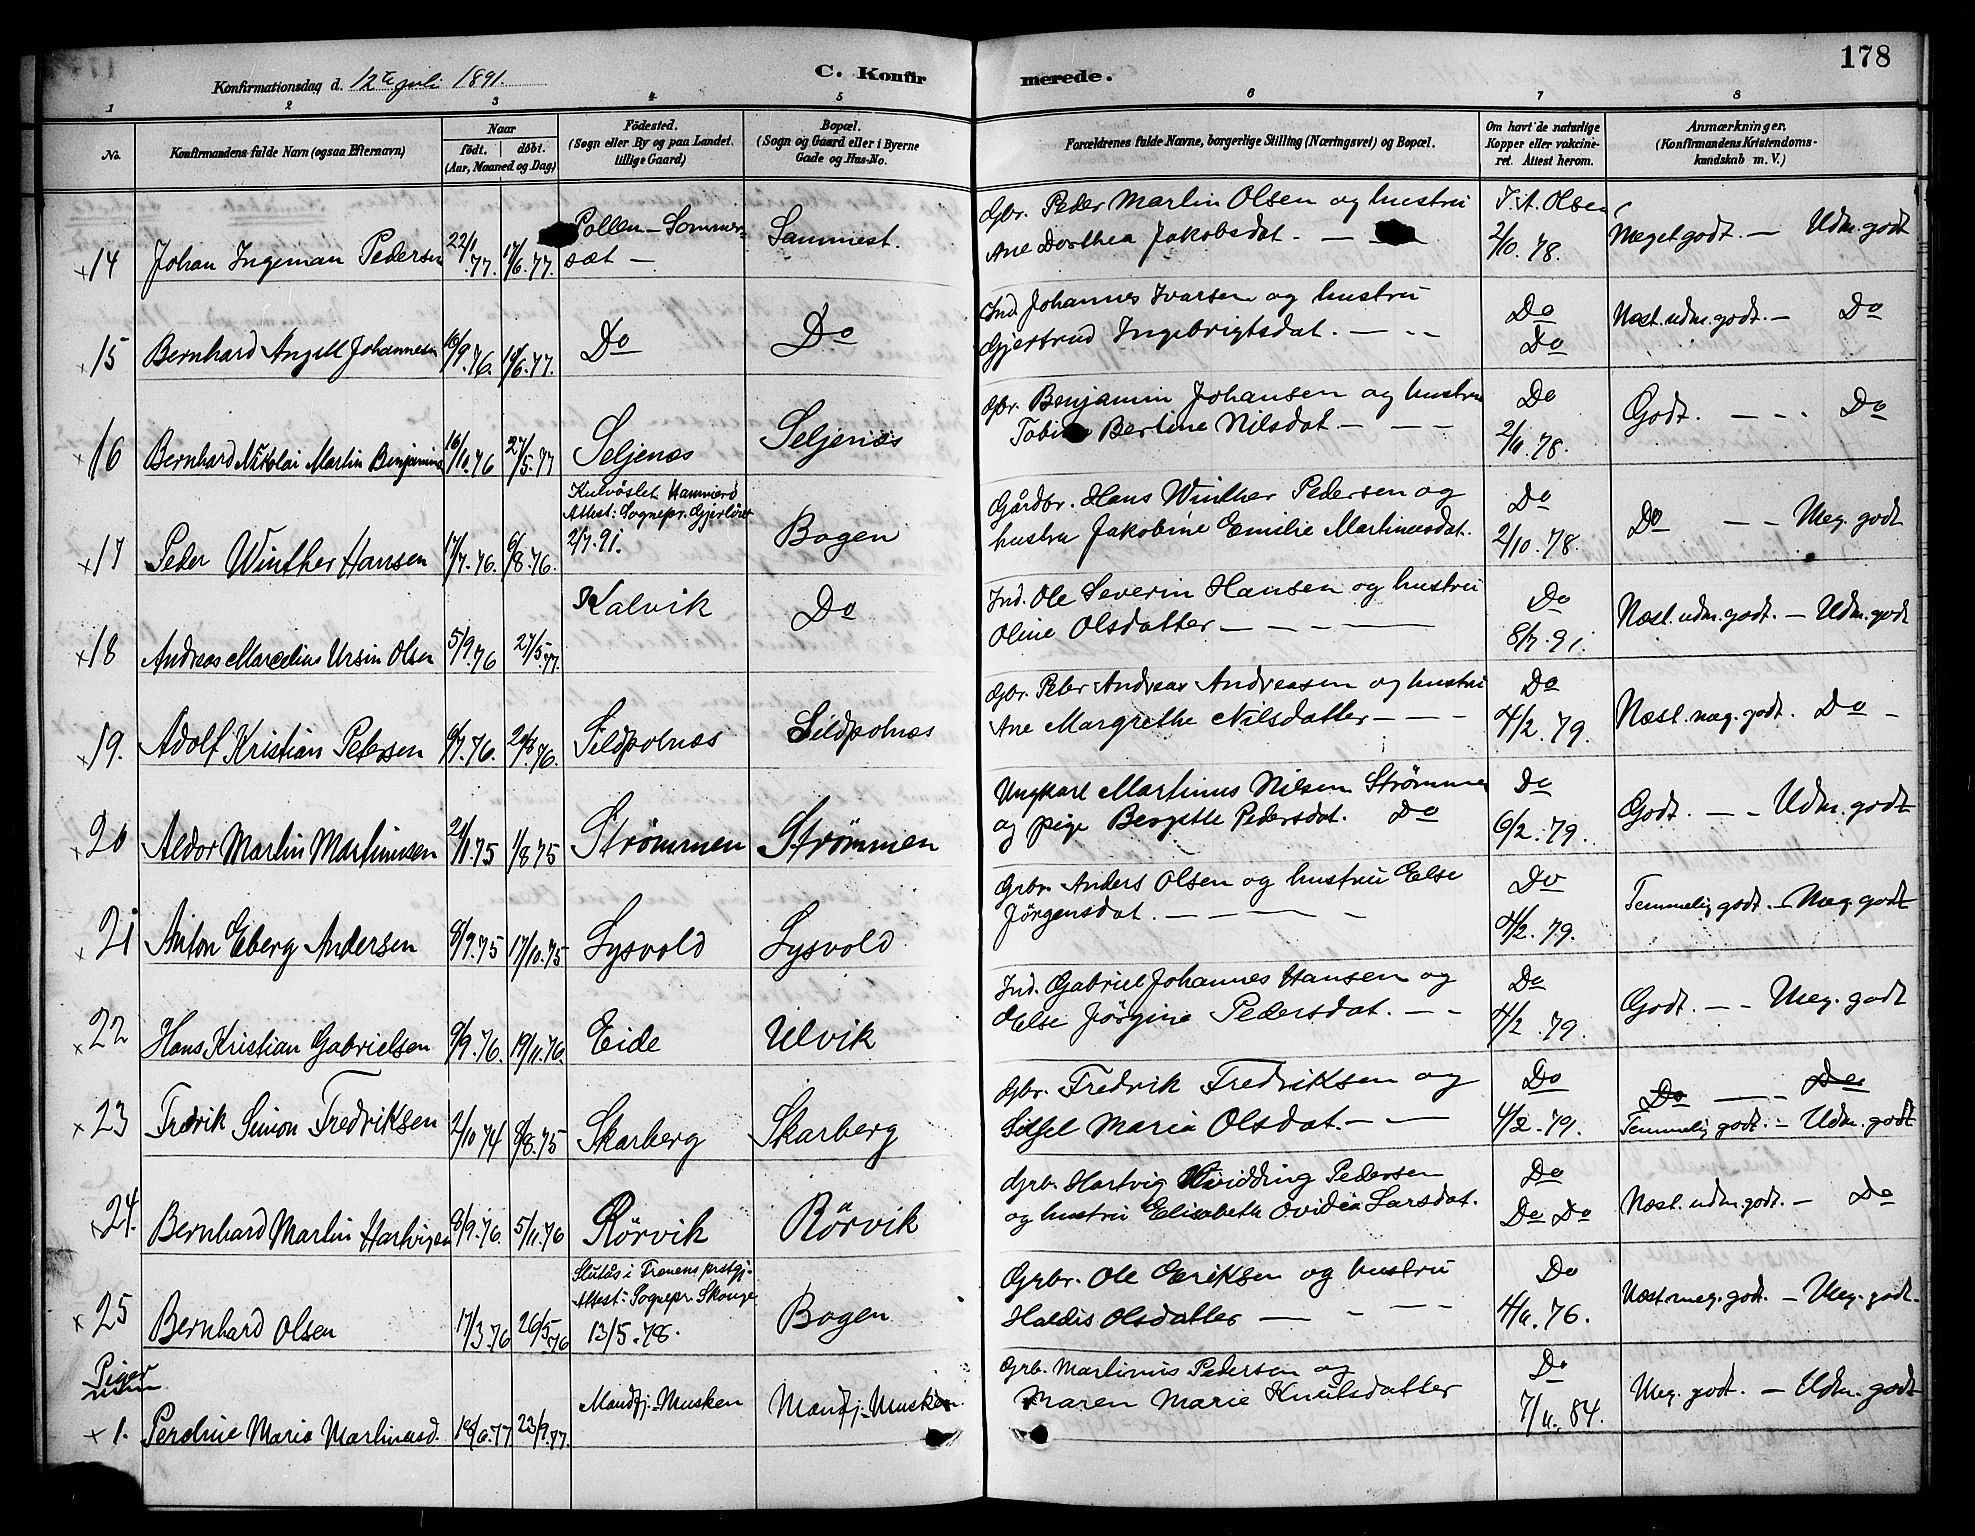 178
Konfirmationsdag d. 12te juli 1891.
C. Konfirmerede.
1 2 3 4 5 6 7 8
No. Konfirmandens fulde Navn (ogsaa Efternavn) Naar født. døbt. (Aar, Maaned og Dag) Födested. (Sogn eller By og paa Landet tillige Gaard) Bopæl. (Sogn og Gaard eller i Byerne Gade og Hus-No. Forældrenes fulde Navne, borgerlige Stilling (Næringsvei) og Bopæl. Om havt de naturlige Kopper eller vakcineret. Attest herom. Anmærkninger. (Konfirmandens Kristendomskundskab m. V.)
x 14 Johan Ingeman Pedersen 22/1.77. 17/6.77. Pollen - Sommersæt - Sammest. Gbr. Peder Martin Olsen og hustru
Ane Dorthea Jakobsdat. - 2/10.78. Meget godt. - Udm. godt
x 15 Bernhard Angell Johannesen 16/9.76. Do Do Ind. Johannes Ivarsen og hustru
Gjertrud Ingebrigtsdat. - - - Do Do Næst. udm. godt. - Do
x 16 Bernhard Nikolai Martin Benjamins 16/10.76 27/5.77 Seljenæs Seljenæs Gbr. Benjamin Johansen og hustru
Bertine Nilsdat - - - Do 2/11.78. Godt. - - - Do
x 17 Peder Winther Hansen 17/7.76. 6/8.76. Attest: Sognepr. 2/7.91. Bogen Gårdbr. Hans Winther Pedersen og
hustru Jakobine Emilie Martinusdat. Do 2/10.78. Do - - Meg. godt
x 18 Andreas Marcelius Ursin Olsen 5/9.76 27/5.77. Kalvik Do Ind. Ole Severin Hansen og hustru
Oline Olsdatter - - - - Do 8/7.91. Næst. udm. godt. - Udm. godt
x 19. Adolf Kristian Petersen Sildpolnæs Sildpolnæs Gbr. Peter Andreas Andreasen og hustru
Ane Margrethe Nilsdatter - - - Do 4/2.79. Næst. meg. godt. Do -
x 20 Aldor Martin Martinussen 1/8.75 Strømmen Strømmen Ungkarl Martinus Nilsen Strømmen
og pige Bergitte Pedersdat. Do Do 6/2.79. Godt. - - Udm. godt
x 21 Anton Eberg Andersen 8/9.75 17/10.75 Lysvold Lysvold Grbr. Anders Olsen og hustru Else
Jörgensdat. - - - - Do 4/2.79. Temmelig godt. - Meg. godt
x 22 Hans Kristian Gabrielsen 9/9.76. 19/11.76. Eide Ulvik Ind. Gabriel Johannes Hansen og
Else Jörgine Pedersdat. - - Do 4/2.79. Godt. - - Meg. godt
x 23 Fredrik Simon Fredriksen 2/10 74 8/8.75 Skarberg Skarberg Gbr. Fredrik Fredriksen og
Sissel Maria Olsdat. - - Do 4/2.79. Do - - Do
Temmelig godt. - Udm. godt
x 24. Bernhard Martin Hartvigsen 8/9.76. 5/11.76 Rörvik Rörvik Grb. Hartvig Kvidding Pedersen
og hustru Elisabeth Ovidia Larsdat. Do Do Do Næst. udm. godt. - Do
x 25 Bernhard Olsen 17/3.76 26/5.76 Slutås i Tranens prstgj. Attest: Sognepr. Skouge 13/5.78. Bogen Grbr. Ole Eriksen og hustru
Haldis Olsdatter - - - - Do 4/6.76. Næst meg. god. - Meg. godt.
Piger
x 1. Perdine Maria Martinusd. 18/6.77. 23/9.77. Mandfj.-Musken Mandfj.-Musken. Grb. Martinus Pedersen og
Maren Marie Knutsdatter Do 7/11.84. Meg. godt. - Udm. godt